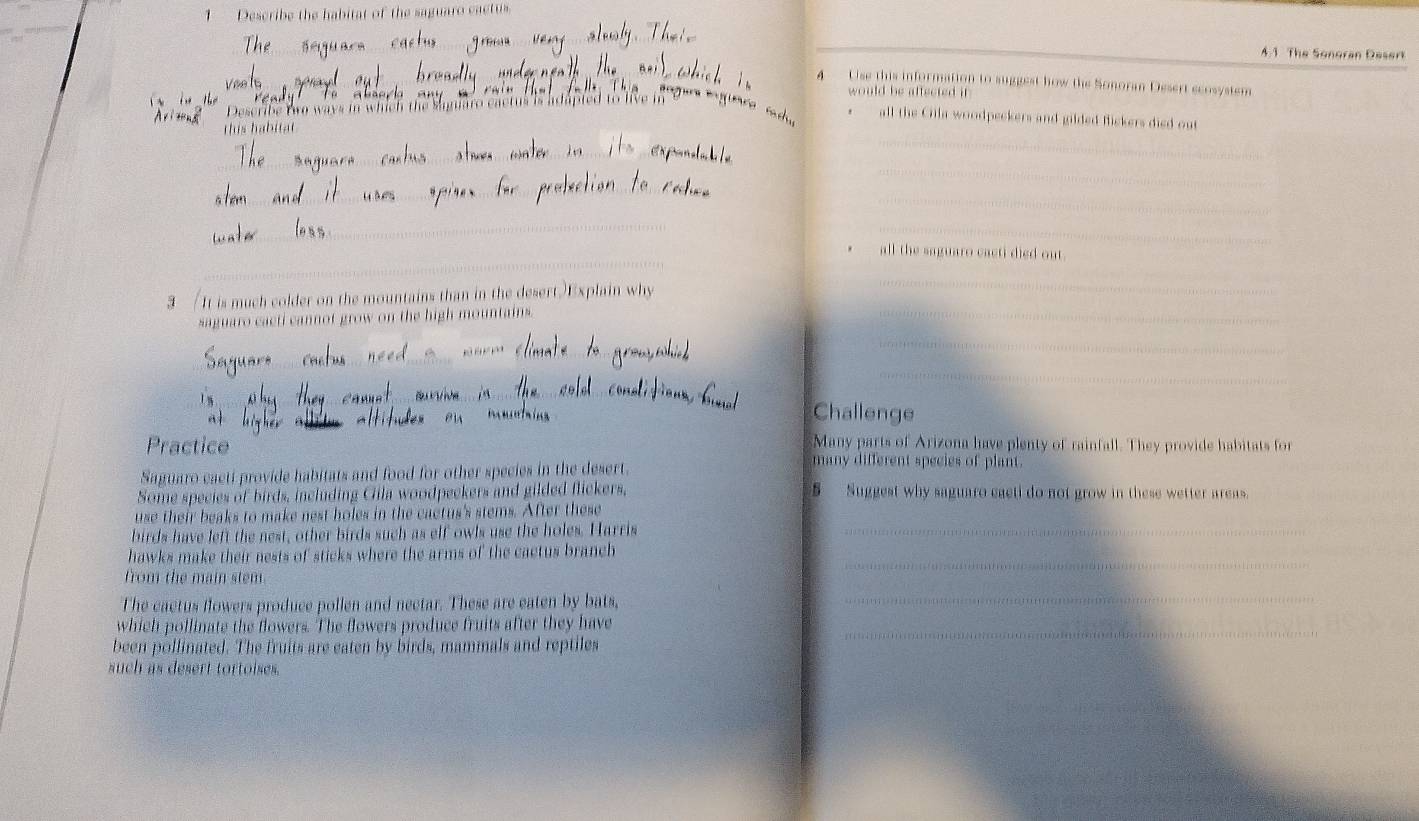 1 Describe the habitat of the saguaro cactus.
The saguaro cactus grows very slowly. Their
roots spread out broadly underneath the soil, which is
ready to absorb any rain that falls. This saguaro cactus
is in the
Arizona
Describe two ways in which the saguaro cactus is adapted to live in
this habitat.
The saguaro cactus stores water in its expandable
stem and it uses spines for protection to reduce
water loss.
3 (It is much colder on the mountains than in the desert.) Explain why
saguaro cacti cannot grow on the high mountains.
Saguaro cactus need a warm climate to grow, which
is why they cannot survive in the cold conditions, found
at higher altitudes on mountains
Practice
Saguaro cacti provide habitats and food for other species in the desert.
Some species of birds, including Gila woodpeckers and gilded flickers,
use their beaks to make nest holes in the cactus's stems. After these
birds have left the nest, other birds such as elf owls use the holes. Harris
hawks make their nests of sticks where the arms of the cactus branch
from the main stem.
The cactus flowers produce pollen and nectar. These are eaten by bats,
which pollinate the flowers. The flowers produce fruits after they have
been pollinated. The fruits are eaten by birds, mammals and reptiles
such as desert tortoises.
4.1 The Sonoran Desert
4 Use this information to suggest how the Sonoran Desert ecosystem
would be affected if:
• all the Gila woodpeckers and gilded flickers died out
• all the saguaro cacti died out.
Challenge
Many parts of Arizona have plenty of rainfall. They provide habitats for
many different species of plant.
5 Suggest why saguaro cacti do not grow in these wetter areas.